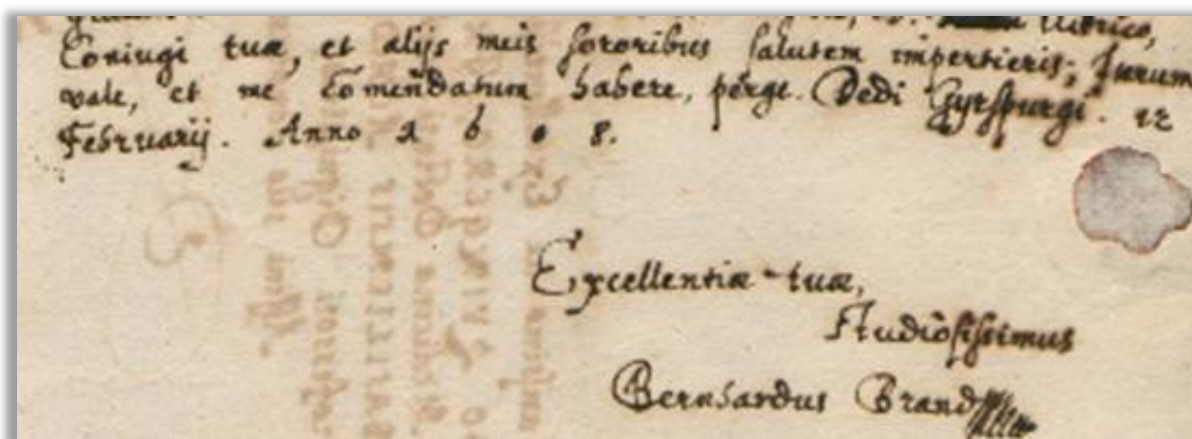 Coniugi tuæ, et alijs meis sororibus salutem impertieris; Iterum
vale, et me Com̄endatum habere, perge. Dedi Gyrspurgi. 12
Februarij. Anno 1608.
Excellentiæ tuæ,
Studiosissimus
Bernhardus Brand